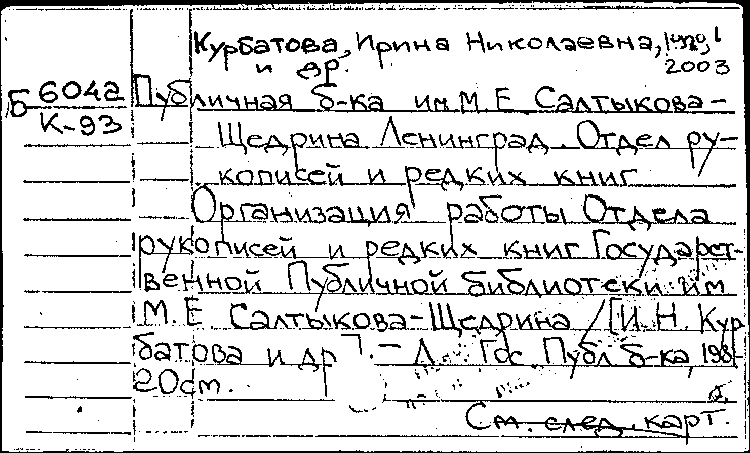 Курбатова, Ирина Николаевна, 1929
и др. 2003
Б 6042
К-93
Публичная б-ка им М. Е. Салтыкова-
Щедрина Ленинград. Отдел ру-
кописей и редких книг
Организация работы Отдела
рукописей и редких книг Государст-
венной Публичной библиотеки им
М. Е Салтыкова-Щедрина / [И. Н. Кур
батова и др]. - Л. Гос Публ б-ка, 198-
20см.
См. след. карт.